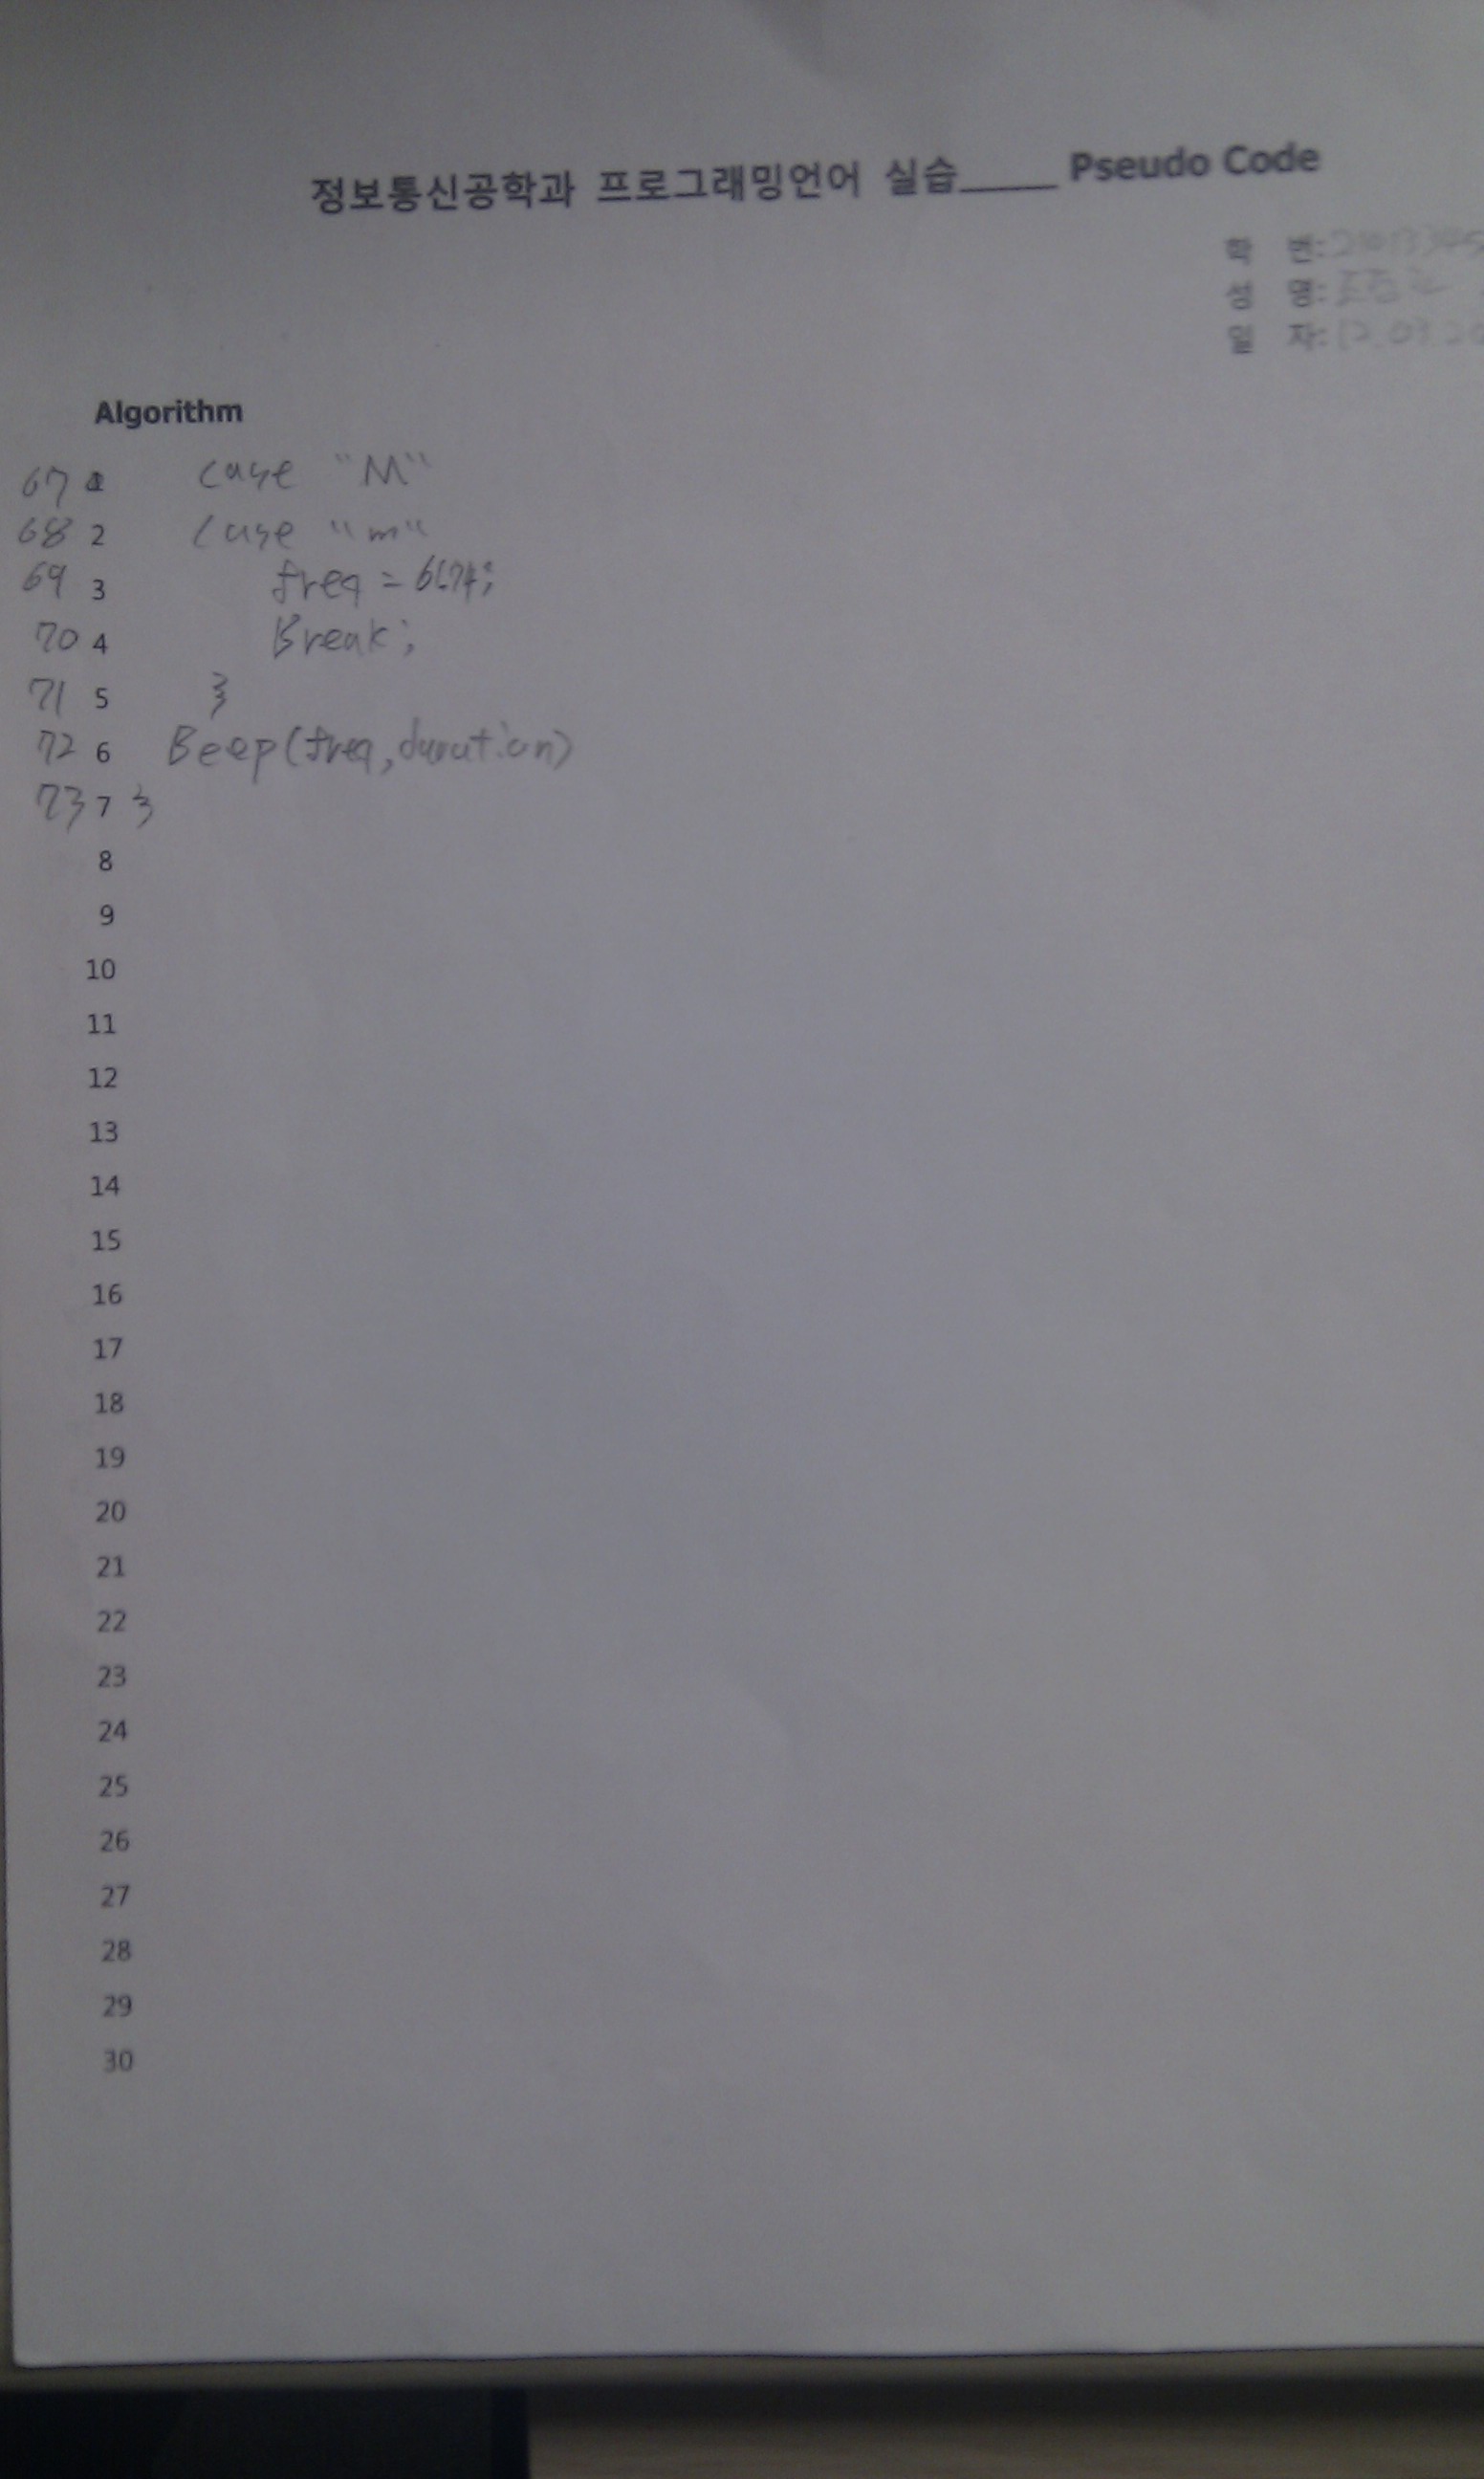 정보통신공학과 프로그래밍언어 실습_____ Pseudo Code
학 번:
성 명:
일 자: 12.03.20
Algorithm
67 1 case "M"
68 2 case "m"
69 3 freq =
70 4 Break;
71 5 }
72 6 Beep(freq,duration)
73 7 }
8
9
10
11
12
13
14
15
16
17
18
19
20
21
22
23
24
25
26
27
28
29
30